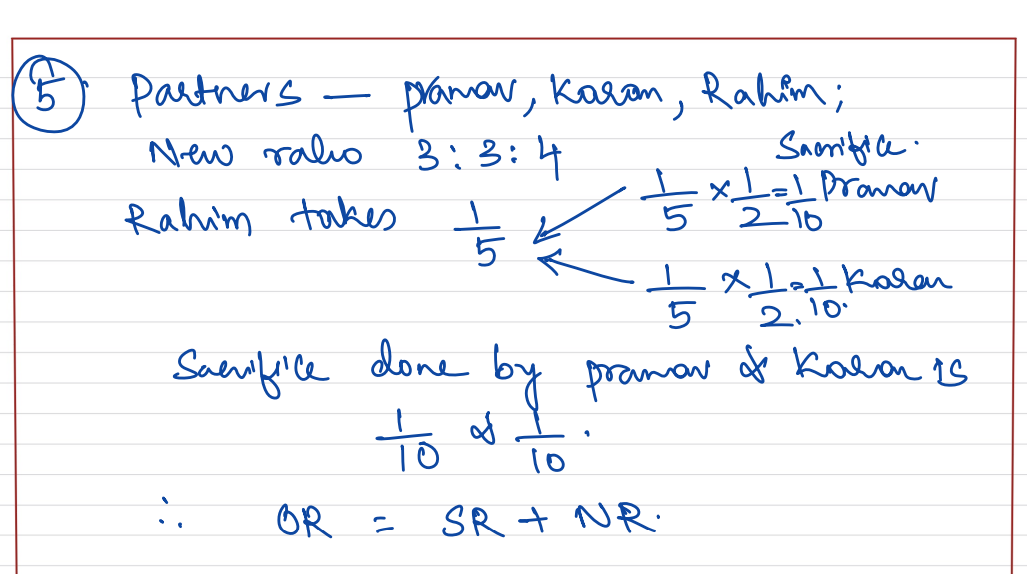 5 Partners — Pranav, Karan, Rahim;
New ratio 3 : 3 : 4 Sacrifice.
Rahim takes 1/5 1/5 × 1/2 = 1/10 Pranav
1/5 × 1/2 = 1/10. Karan
Sacrifice done by pranav & Karan is
1/10 & 1/10.
∴ OR = SR + NR.